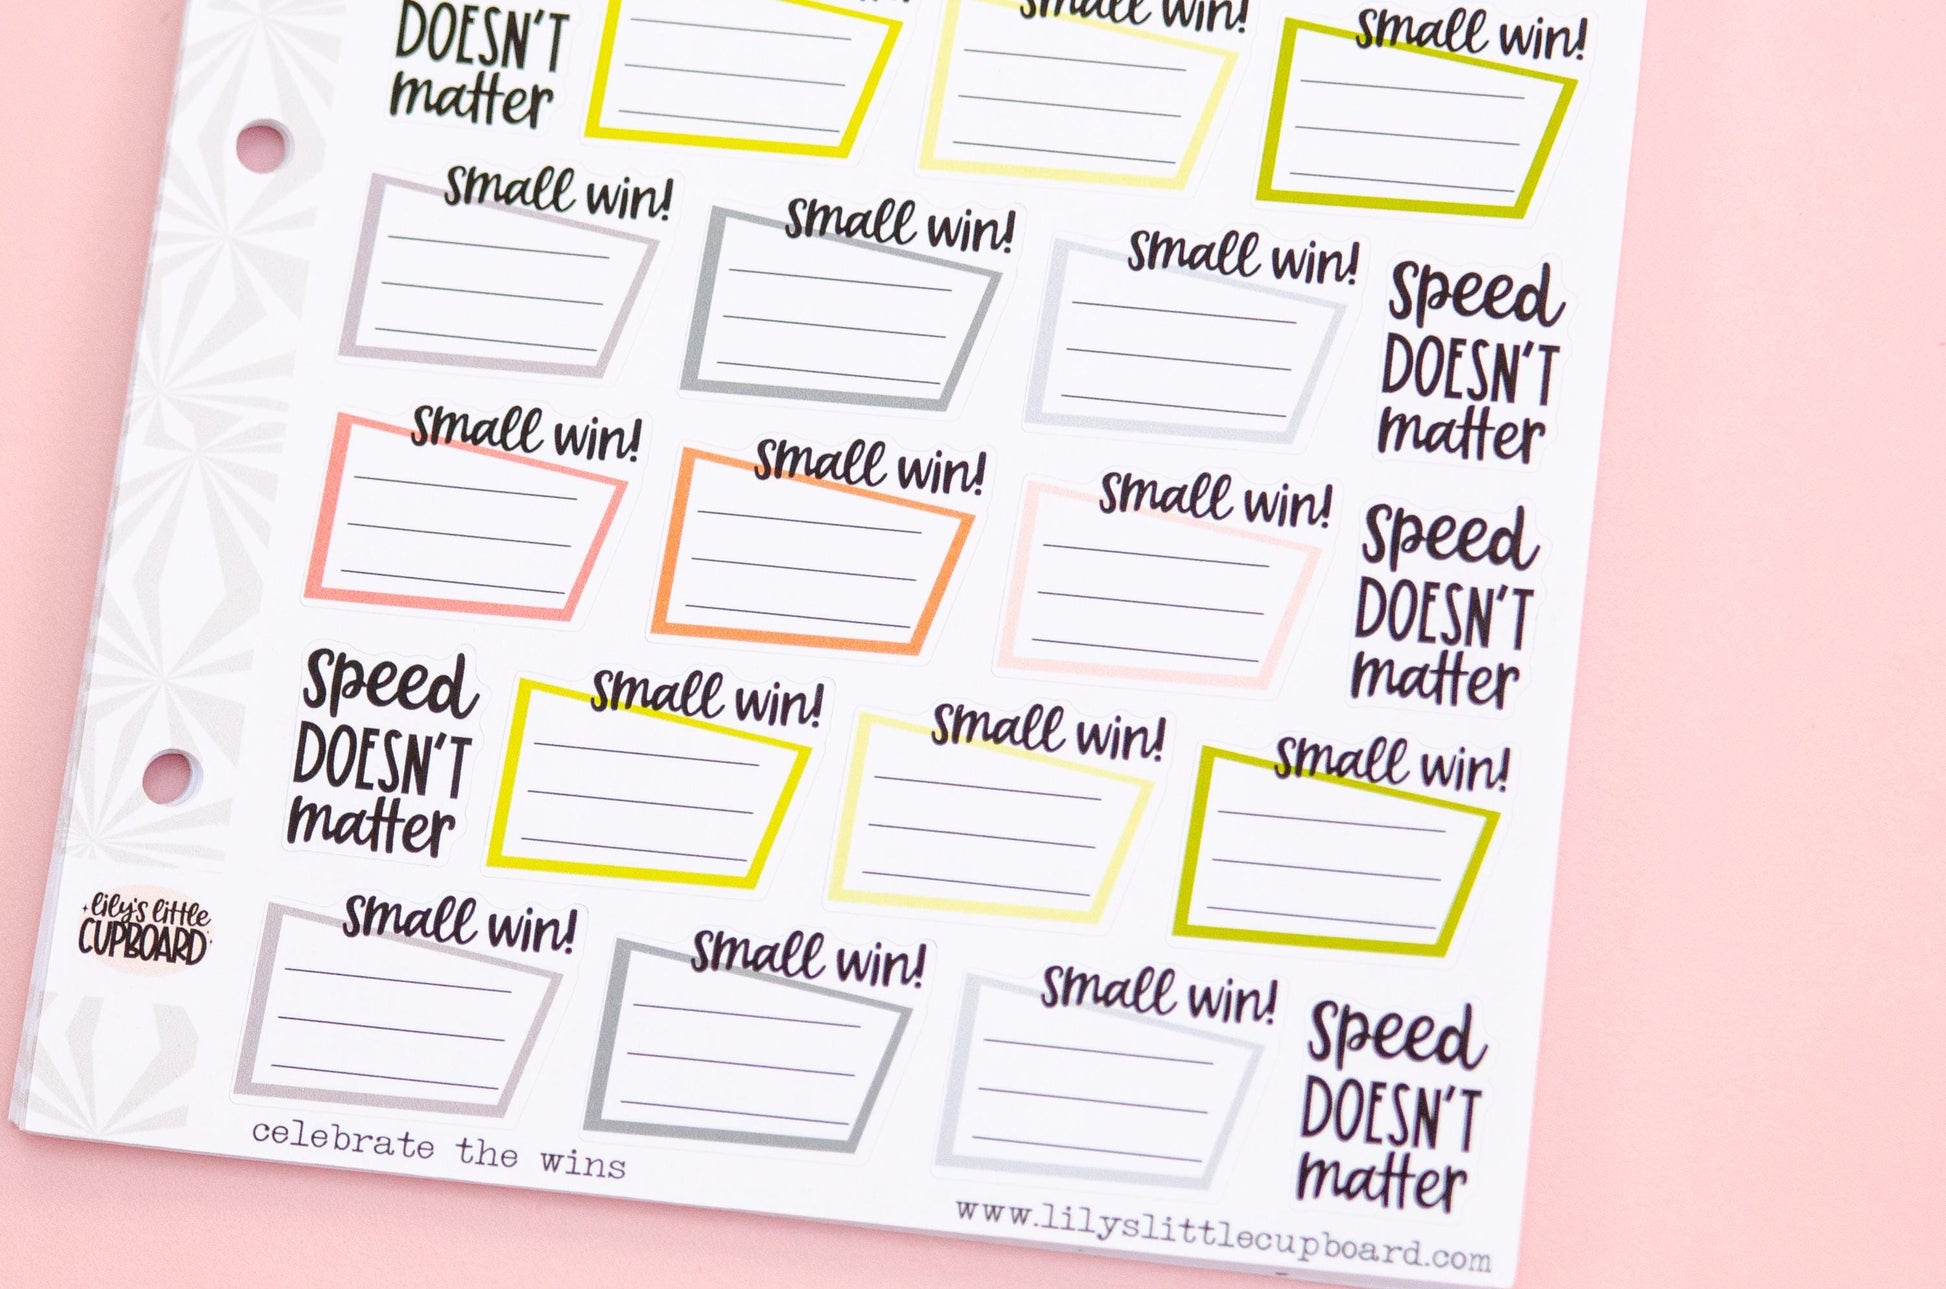 small win!
small win!
DOESN'T
matter
small win!
small win!
small win!
speed
DOESN'T
matter
small win!
small win!
small win!
speed
DOESN'T
matter
speed
DOESN'T
matter
small win!
small win!
small win!
lily's little
CUPBOARD
small win!
small win!
small win!
speed
DOESN'T
matter
celebrate the wins
www.lilyslittlecupboard.com